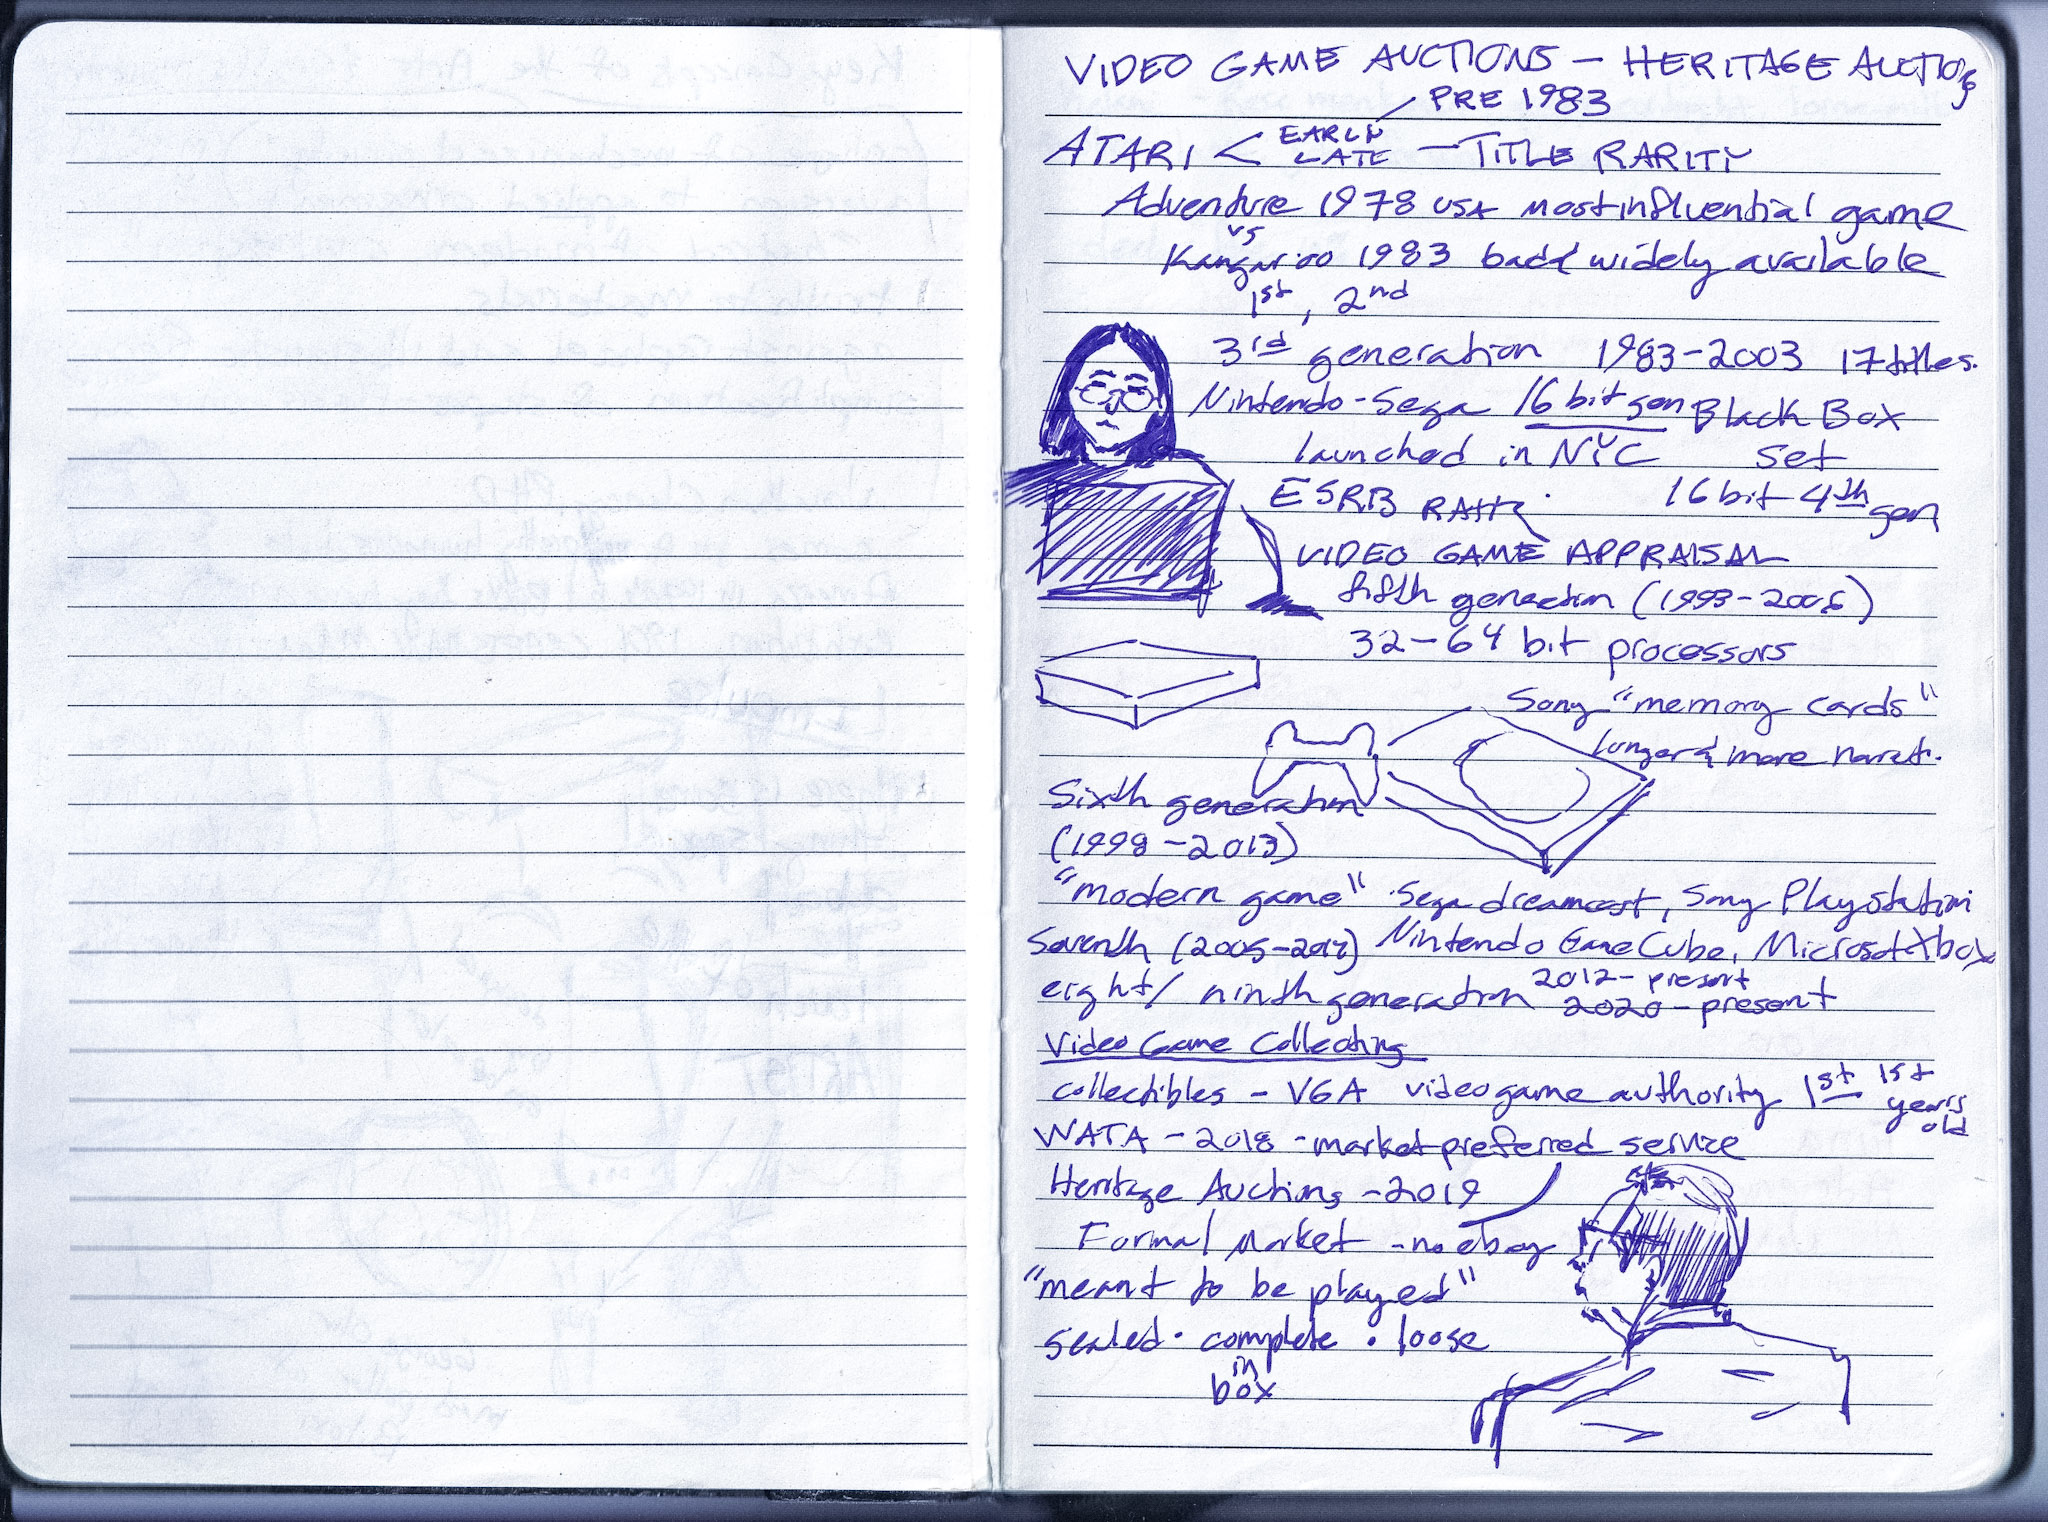 VIDEO GAME AUCTIONS - HERITAGE AUCTIONS
PRE 1983
ATARI < EARLY LATE - TITLE RARITY
Adventure 1978 USA most influential game
vs
Kangaroo 1983 bad & widely available
1st, 2nd
3rd generation 1983-2003 17 titles.
Nintendo-Sega 16 bit gen Black Box
launched in NYC Set
ESRB 16 bit 4th gen
VIDEO GAME APPRAISAL
fifth generation (1993-2006)
32-64 bit processors
Sony "memory cards"
longer & more narrat.
Sixth generation
(1998-2013)
"modern game" Sega dreamcast, Sony Playstation
Seventh (2005-2017) Nintendo GameCube, Microsoft Xbox
eight/ ninth generation 2012-present
2020-present
Video Game Collecting
collectibles - VGA video game authority 1st 1st
years
old
WATA - 2018 - market preferred service
Heritage Auctions - 2019
Formal Market - no ebay
"meant to be played"
sealed · complete · loose
in
box